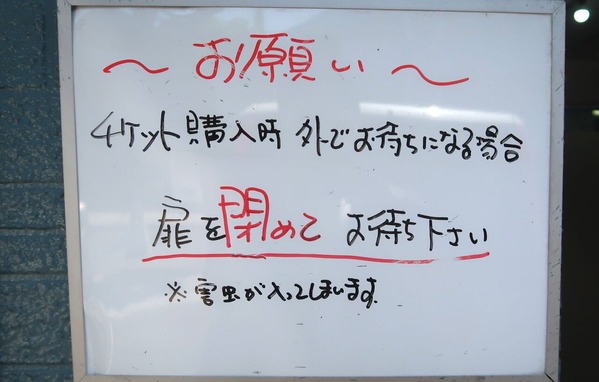 ～お願い～
チケット購入時 外でお待ちになる場合
扉を閉めて お待ち下さい
※害虫が入ってしまいます